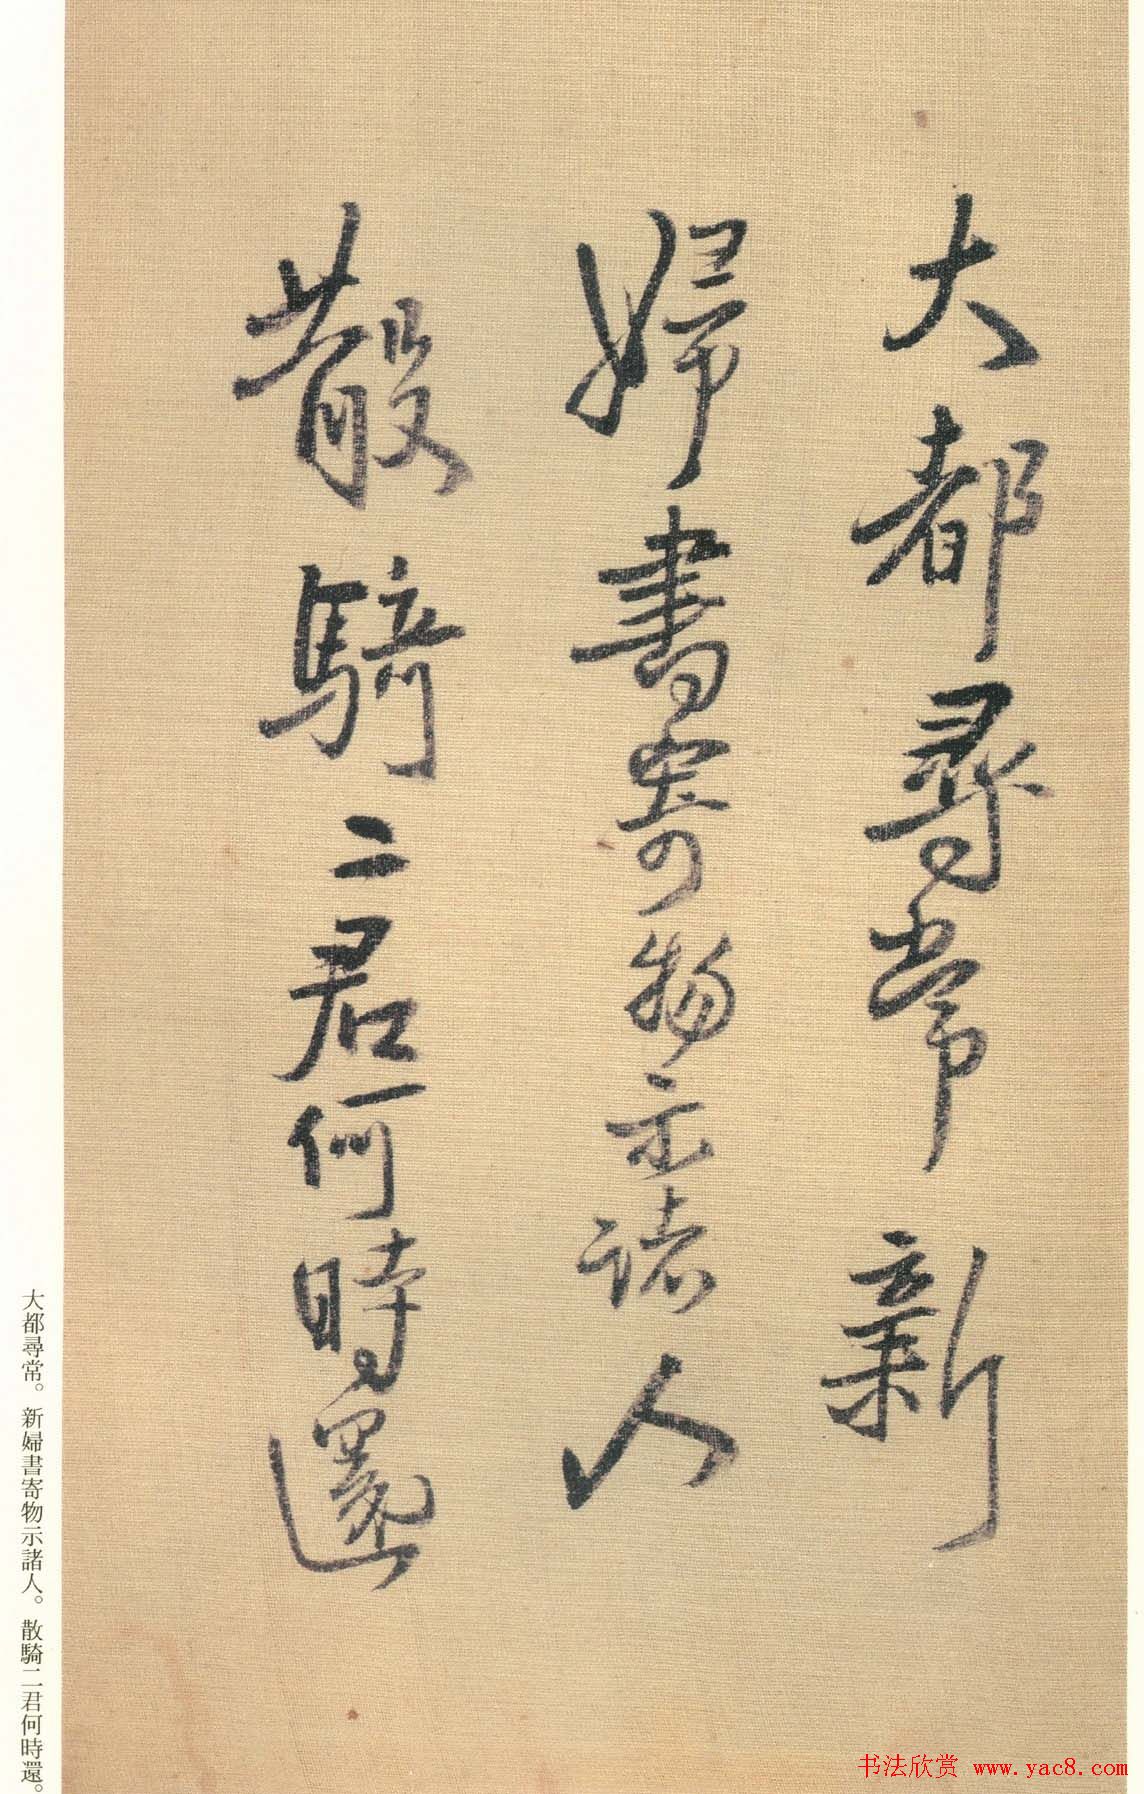 大都尋常新
婦書寄物示諸人
散騎二君何時還
大都尋常。新婦書寄物示諸人。散騎二君何時還。
书法欣赏 www.yac8.com